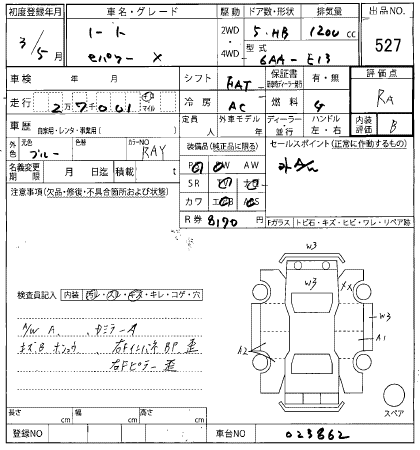 初度登録年月 車名・グレード 駆動 ドア数・形状 排気量 出品NO.
3/5月 ノート 2WD 5・HB 1200cc 527
eパワー X 4WD 型式 6AA-E13
車検 年 月 シフト FAT 保証書 有・無 評価点
走行 2万7001 km マイル 冷房 AC 燃料 G RA
車歴 自家用・レンタ・事業用( ) 定員 人 外車モデル 年 ディーラー 並行 ハンドル 左・右 内装評価 B
外色 元色 ブルー 色替 カラーNO RAY 装備品(純正品に限る) セールスポイント(正常に作動するもの)
名義変更期限 月 日迄 積載 t PS PW AW
注意事項(欠品・修復・不具合箇所および状態) SR
カワ
R券 8190 Fガラス トビ石・キズ・ヒビ・ワレ・リペア跡
W3
W3
XX
W3
A1
A2
検査員記入 内装 ヨレ・スレ・キズ・キレ・コゲ・穴
A/W A
歪
歪
スペア
長さ cm 幅 cm 高さ cm
登録NO 車台NO 023862